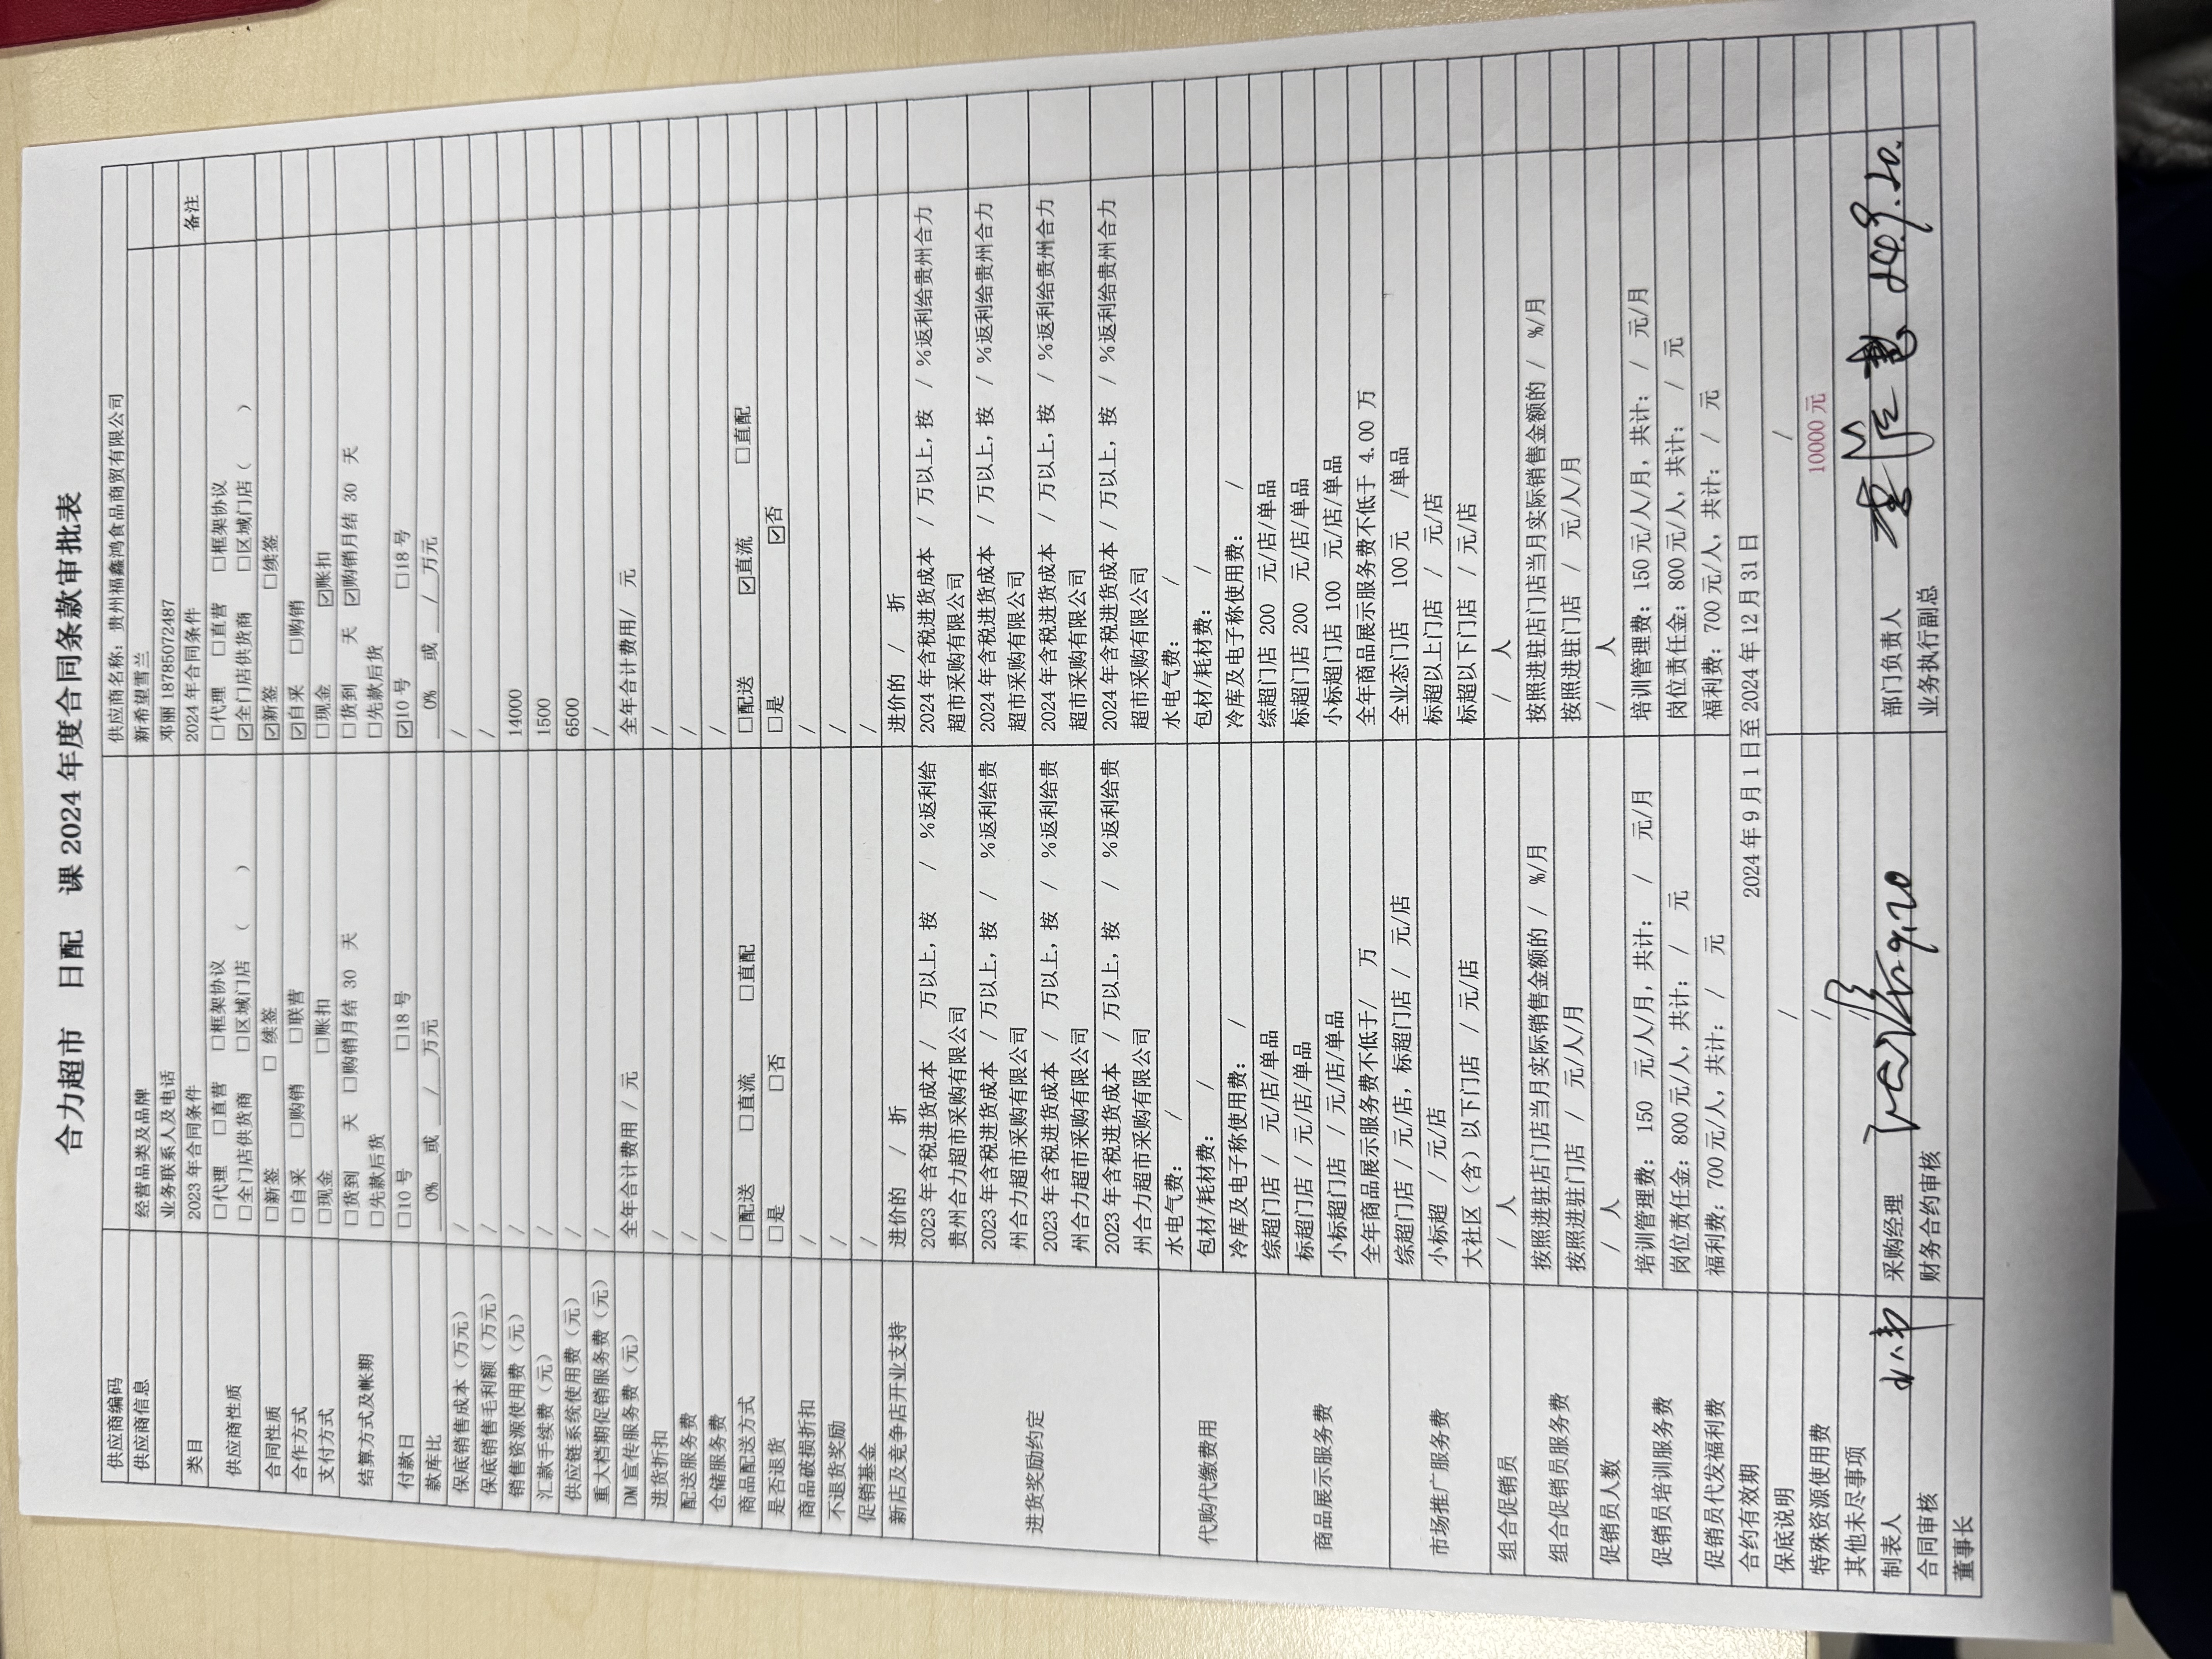 合力超市 日配 课 2024 年度合同条款审批表
供应商编码 供应商名称：贵州福鑫鸿食品商贸有限公司
供应商信息 经营品类及品牌 新希望雪兰
业务联系人及电话 邓丽 18785072487
类目 2023 年合同条件 2024 年合同条件 备注
供应商性质 □代理 □直营 □框架协议 □代理 □直营 □框架协议
□全门店供货商 □区域门店（ ） ☑全门店供货商 □区域门店（ ）
合同性质 □新签 □ 续签 ☑新签 □续签
合作方式 □自采 □购销 □联营 ☑自采 □购销
支付方式 □现金 □账扣 □现金 ☑账扣
结算方式及帐期 □货到 天 □购销月结 30 天 □货到 天 ☑购销月结 30 天
□先款后货 □先款后货
付款日 □10 号 □18 号 ☑10 号 □18 号
款库比 0% 或 / 万元 0% 或 / 万元
保底销售成本（万元） / /
保底销售毛利额（万元） / /
销售资源使用费（元） / 14000
汇款手续费（元） / 1500
供应链系统使用费（元） / 6500
重大档期促销服务费（元） / /
DM 宣传服务费（元） 全年合计费用 / 元 全年合计费用/ 元
进货折扣 / /
配送服务费 / /
仓储服务费 / /
商品配送方式 □配送 □直流 □直配 □配送 ☑直流 □直配
是否退货 □是 □否 □是 ☑否
商品破损折扣 / /
不退货奖励 / /
促销基金 / /
新店及竞争店开业支持 进价的 / 折 进价的 / 折
进货奖励约定 2023 年含税进货成本 / 万以上，按 / %返利给贵州合力超市采购有限公司 2024 年含税进货成本 / 万以上，按 / %返利给贵州合力超市采购有限公司
2023 年含税进货成本 / 万以上，按 / %返利给贵州合力超市采购有限公司 2024 年含税进货成本 / 万以上，按 / %返利给贵州合力超市采购有限公司
2023 年含税进货成本 / 万以上，按 / %返利给贵州合力超市采购有限公司 2024 年含税进货成本 / 万以上，按 / %返利给贵州合力超市采购有限公司
2023 年含税进货成本 / 万以上，按 / %返利给贵州合力超市采购有限公司 2024 年含税进货成本 / 万以上，按 / %返利给贵州合力超市采购有限公司
代购代缴费用 水电气费： / 水电气费： /
包材/耗材费： / 包材/耗材费： /
冷库及电子称使用费： / 冷库及电子称使用费： /
商品展示服务费 综超门店 / 元/店/单品 综超门店 200 元/店/单品
标超门店 / 元/店/单品 标超门店 200 元/店/单品
小标超门店 / 元/店/单品 小标超门店 100 元/店/单品
全年商品展示服务费不低于/ 万 全年商品展示服务费不低于 4.00 万
市场推广服务费 综超门店 / 元/店，标超门店 / 元/店 全业态门店 100 元 /单品
小标超 / 元/店 标超以上门店 / 元/店
大社区（含）以下门店 / 元/店 标超以下门店 / 元/店
组合促销员 / 人 / 人
组合促销员服务费 按照进驻店门店当月实际销售金额的 / %/月 按照进驻店门店当月实际销售金额的 / %/月
按照进驻门店 / 元/人/月 按照进驻门店 / 元/人/月
促销员人数 / 人 / 人
促销员培训服务费 培训管理费： 150 元/人/月，共计： / 元/月 培训管理费：150 元/人/月，共计： / 元/月
岗位责任金：800 元/人，共计： / 元 岗位责任金：800 元/人，共计： / 元
促销员代发福利费 福利费：700 元/人，共计： / 元 福利费：700 元/人，共计： / 元
合约有效期 2024 年 9 月 1 日至 2024 年 12 月 31 日
保底说明 / /
特殊资源使用费 / 10000 元
其他未尽事项
制表人 采购经理 9.20 部门负责人 24.9.20.
合同审核 财务合约审核 业务执行副总
董事长